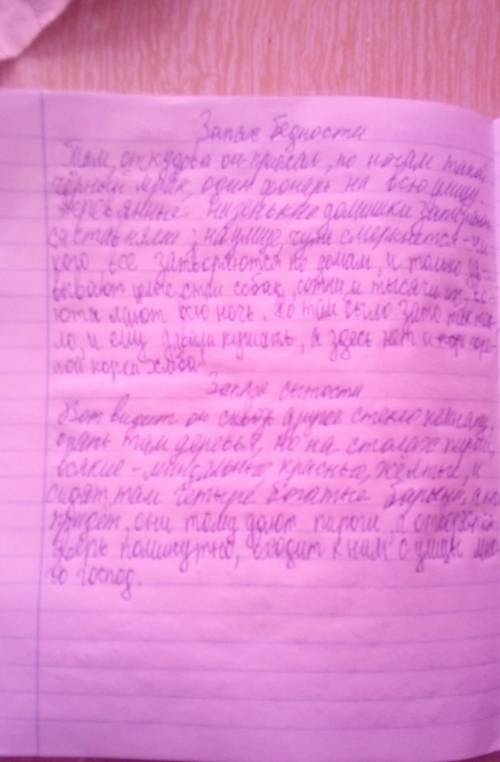 Запах бедности
Там, откудова он приехал, по ночам такой
чёрный мрак, один фонарь на всю улицу.
Деревянные низенькие домишки запирают
ся ставнями; на улице, чуть смеркнется - ни
кого, все затворяются по домам, и только за-
вывают целые стаи собак, сотни и тысячи их, во-
ют и лают всю ночь. Но там было зато так теп
ло, и ему давали кушать, а здесь нет и
корки хлеба.
Запах сытости
Вот видит он сквозь другое стекло комнату,
опять там деревья, но на столах пироги,
всякие - миндальные, красные, жёлтые, и
сидят там четыре богатые барыни, а кто
придёт, они тому дают пироги, а отворяется
дверь поминутно, входит к ним с улицы мно
го господ.